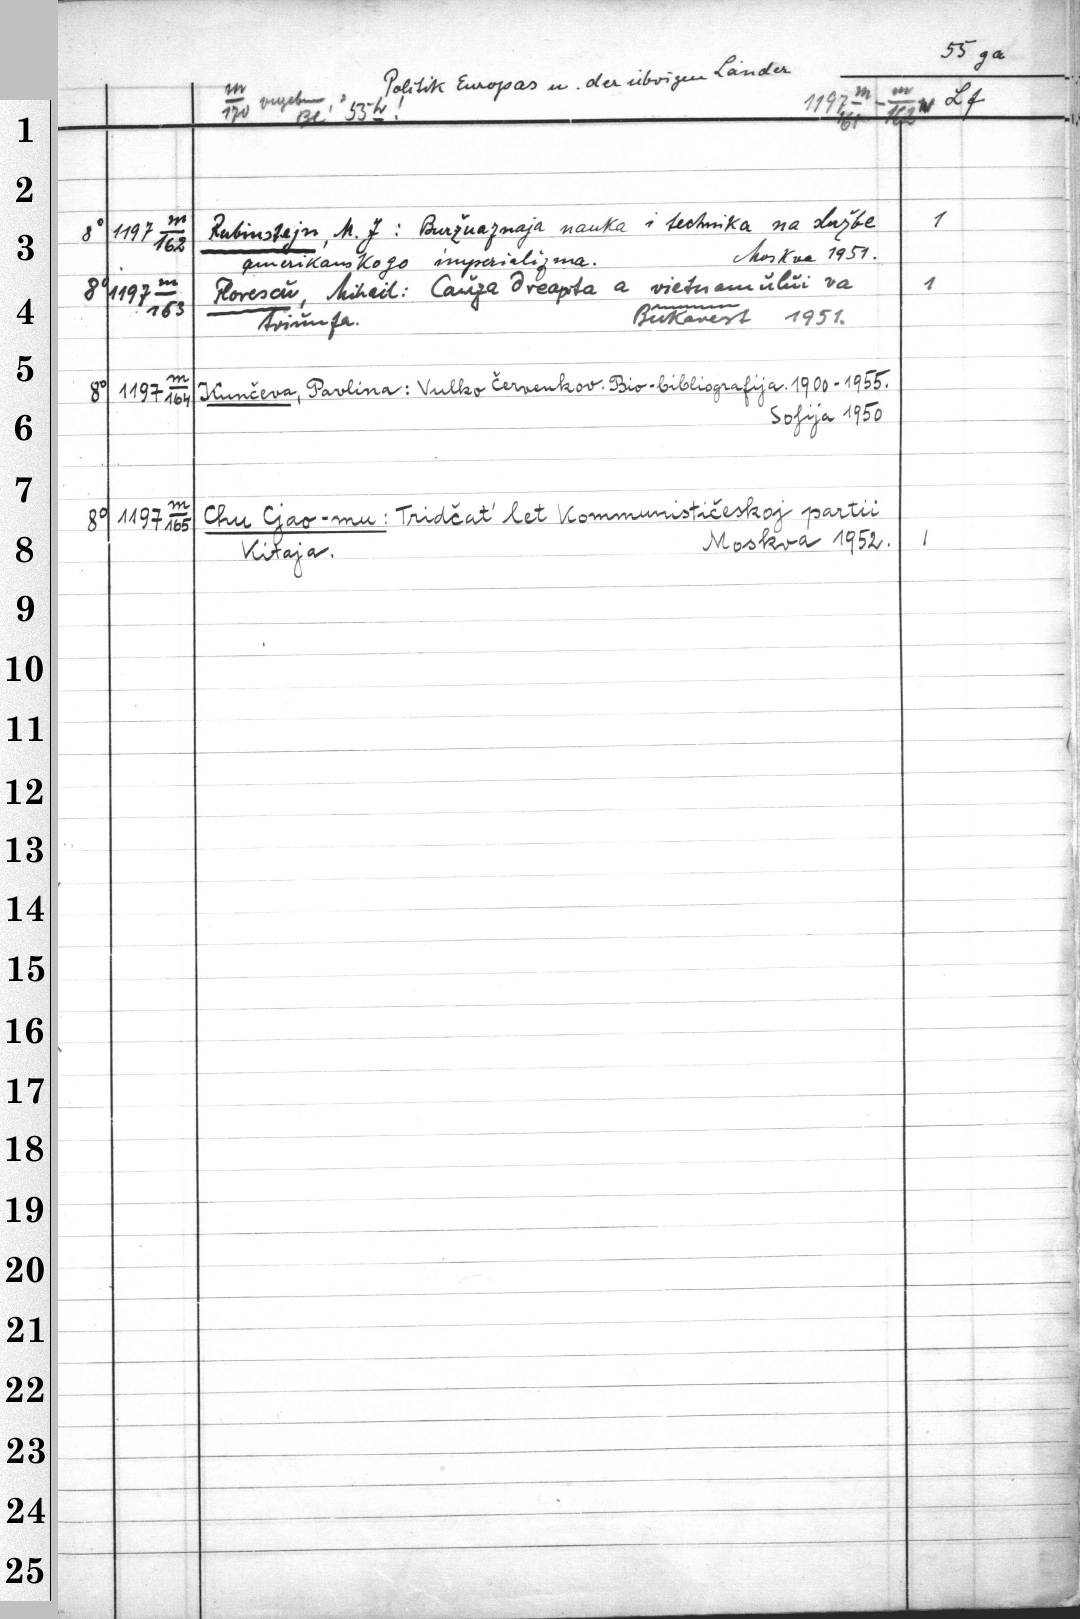 55 ga
Politik Europas u. der übrigen Länder
m/170 vergeben Bl. 55 h!
1197 m/161 - m/162 Lf
1
2
8° 1197 m/162 Rubinstejn, M. J : Buržuaznaja nauka i technika na službe 1
3
amerikanskogo imperializma. Moskva 1951.
8° 1197 m/163 Florescu, Mihail: Cauza dreapta a vietnamului va 1
4
triumfa. Bukarest 1951.
5
8° 1197 m/164 Kunčeva, Pavlina: Vulko Červenkov. Bio-bibliografija. 1900-1955.
6
Sofija 1950
7
8° 1197 m/165 Chu Cjao-mu: Tridčat' let Kommunističeskoj partii
8
Kitaja. Moskva 1952. 1
9
10
11
12
13
14
15
16
17
18
19
20
21
22
23
24
25